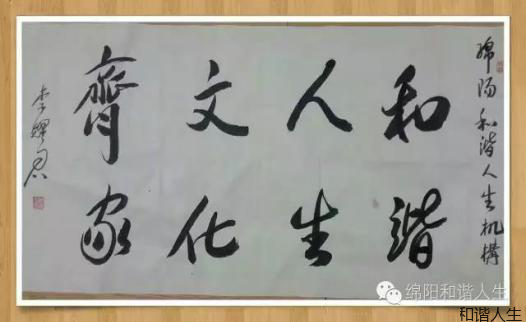 绵阳和谐人生机構
和谐
人生
文化
齊家
绵阳和谐人生
和谐人生